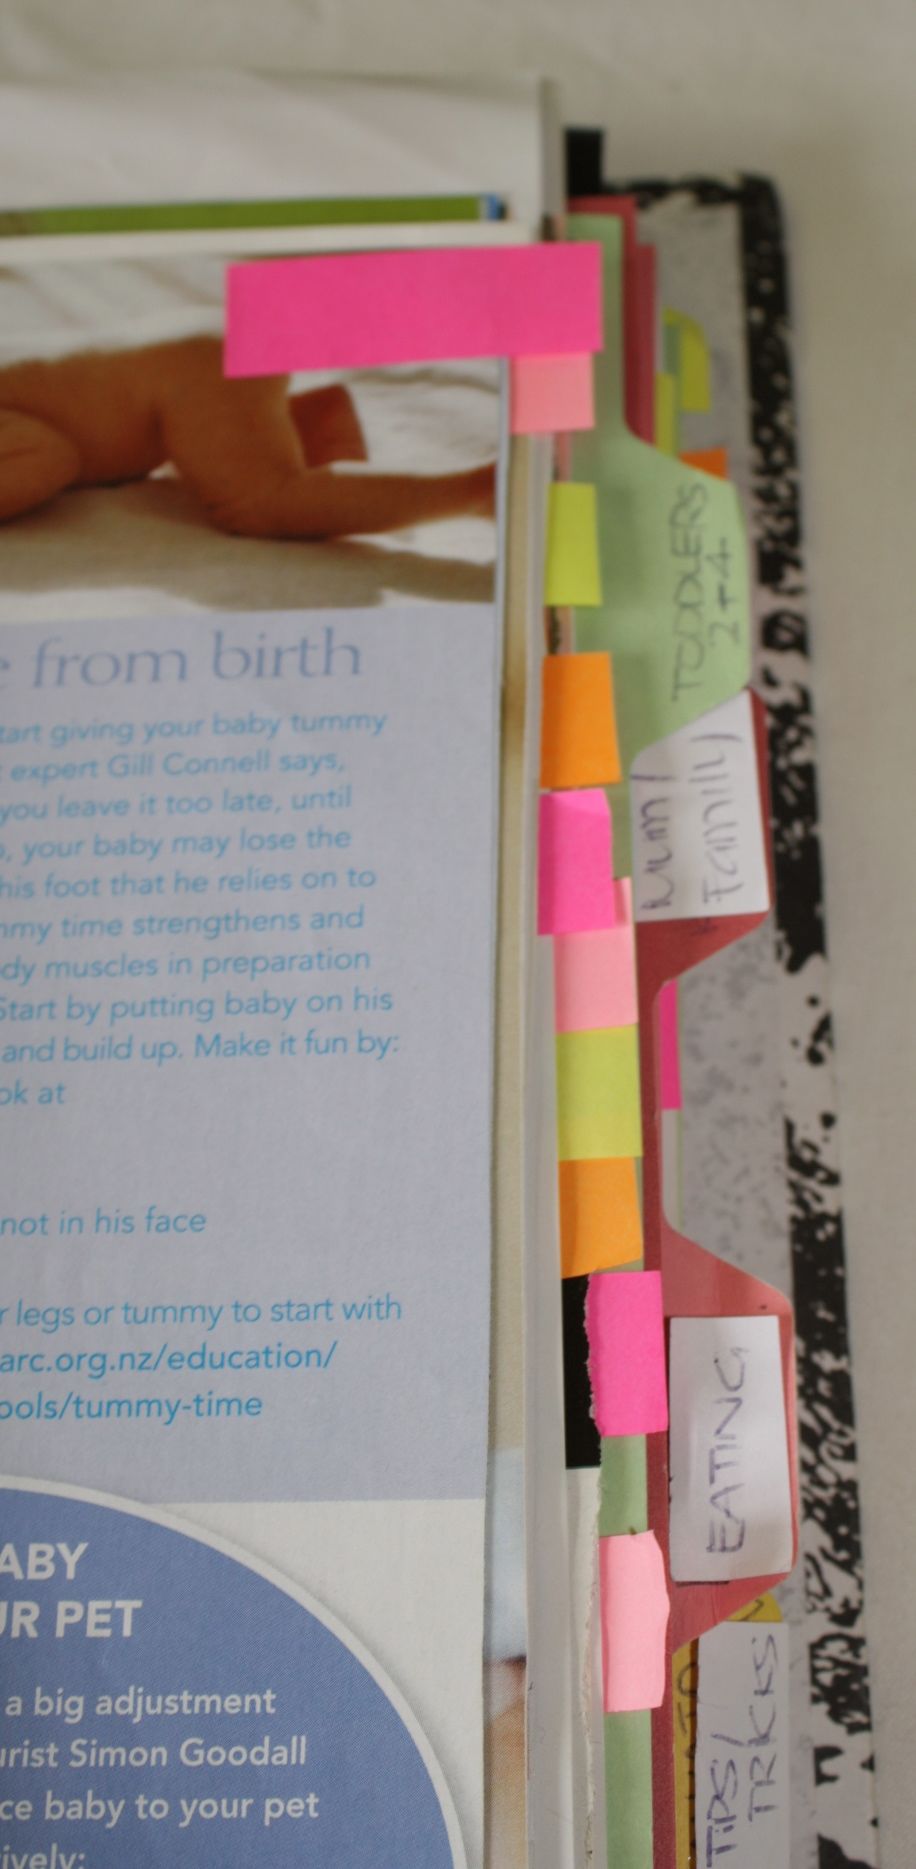 from birth
start giving your baby tummy
expert Gill Connell says,
you leave it too late, until
your baby may lose the
his foot that he relies on to
time strengthens and
muscles in preparation
Start by putting baby on his
and build up. Make it fun by:
at
not in his face
legs or tummy to start with
arc.org.nz/education/
ools/tummy-time
ABY
UR PET
a big adjustment
Simon Goodall
baby to your pet
TODDLERS
2+4
Mum/
Family
EATING
TIPS/
TRICKS